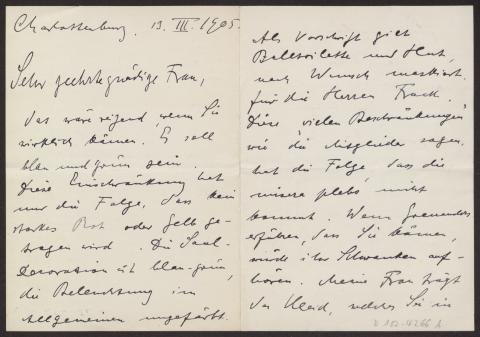 Charlottenburg, 13. III. 1905.
Sehr geehrte gnädige Frau,
das wäre reizend wenn Sie
wirklich kämen. Es soll
blau und grün sein.
Diese Einschränkung hat
nur die Folge, dass kein
starkes Rot oder Gelb ge-
tragen wird. Die Saal-
Decoration ist blau-grün,
die Beleuchtung im
Allgemeinen ungefärbt.
Als Vorschrift gilt
Balltoilette und Hut,
nach Wunsch maskiert.
für die Herren Frack.
Diese vielen „Beschränkungen"
wie die Mitglieder sagen,
hat die Folge, dass die
misera plebs nicht
kommt. Wenn
erführen, dass Sie kämen,
würde ihr Schwanken auf-
hören. Meine Frau trägt
das Kleid, welches Sie in